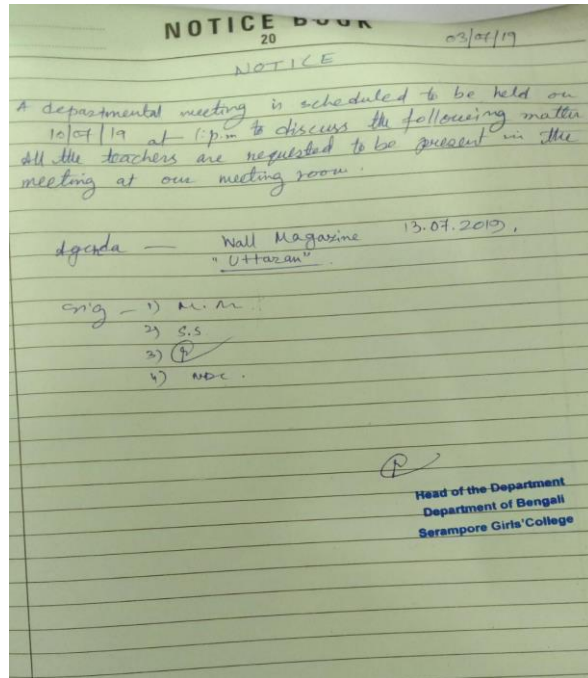 NOTICE BOOK
20
03/07/19
NOTICE
A departmental meeting is scheduled to be held on
10/07/19 at 1:p.m to discuss the following matter
All the teachers are requested to be present in the
meeting at our meeting room.
Agenda — Wall Magazine 13.07.2019.
"Uttaran"
Sig – 1) M.M.
2) S.S
3)
4) NDC.
Head of the Department
Department of Bengali
Serampore Girls' College